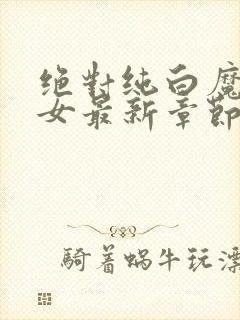 绝對纯白魔
女最新章節
騎着蜗牛玩漂